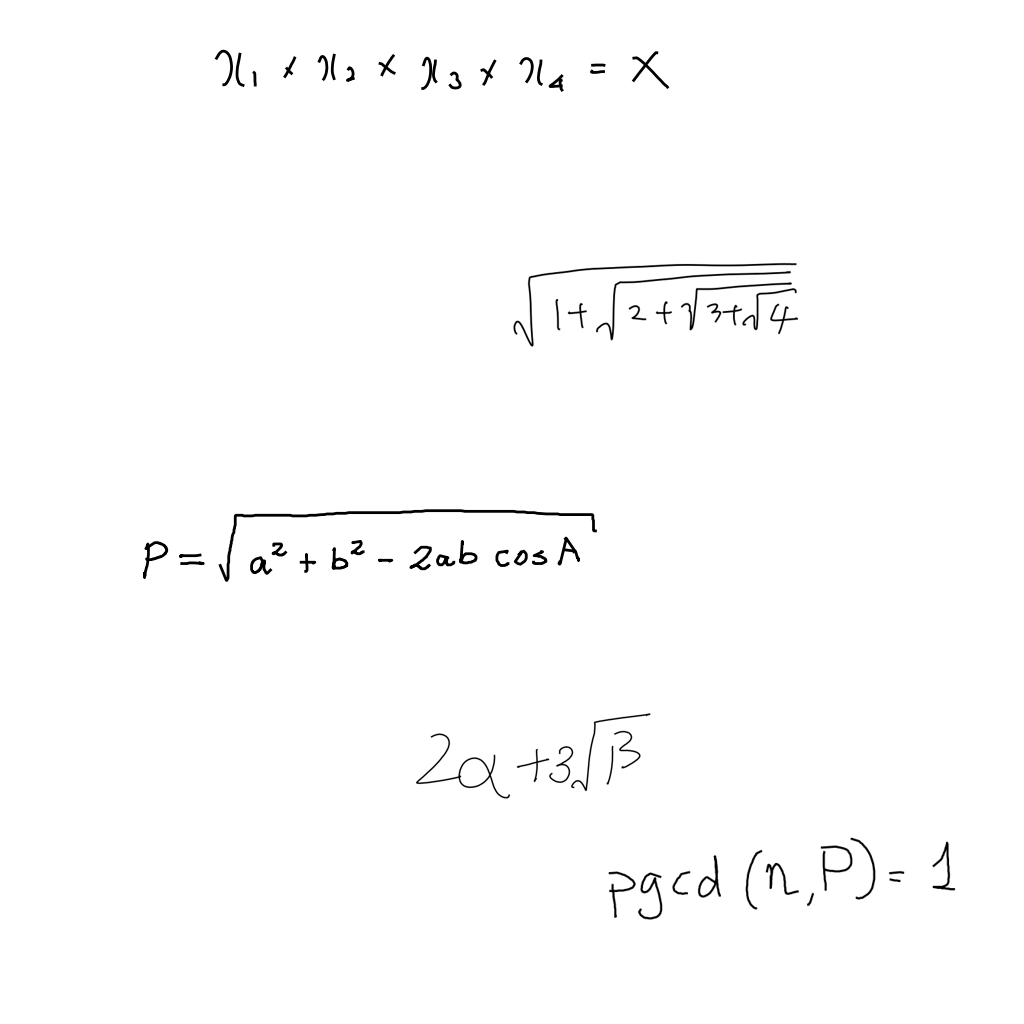 x₁ × x₂ × x₃ × x₄ = X
√(1+√(2+√(3+√4)))
P = √(a² + b² - 2ab cos A)
2α+3√β
pgcd (n,P) = 1